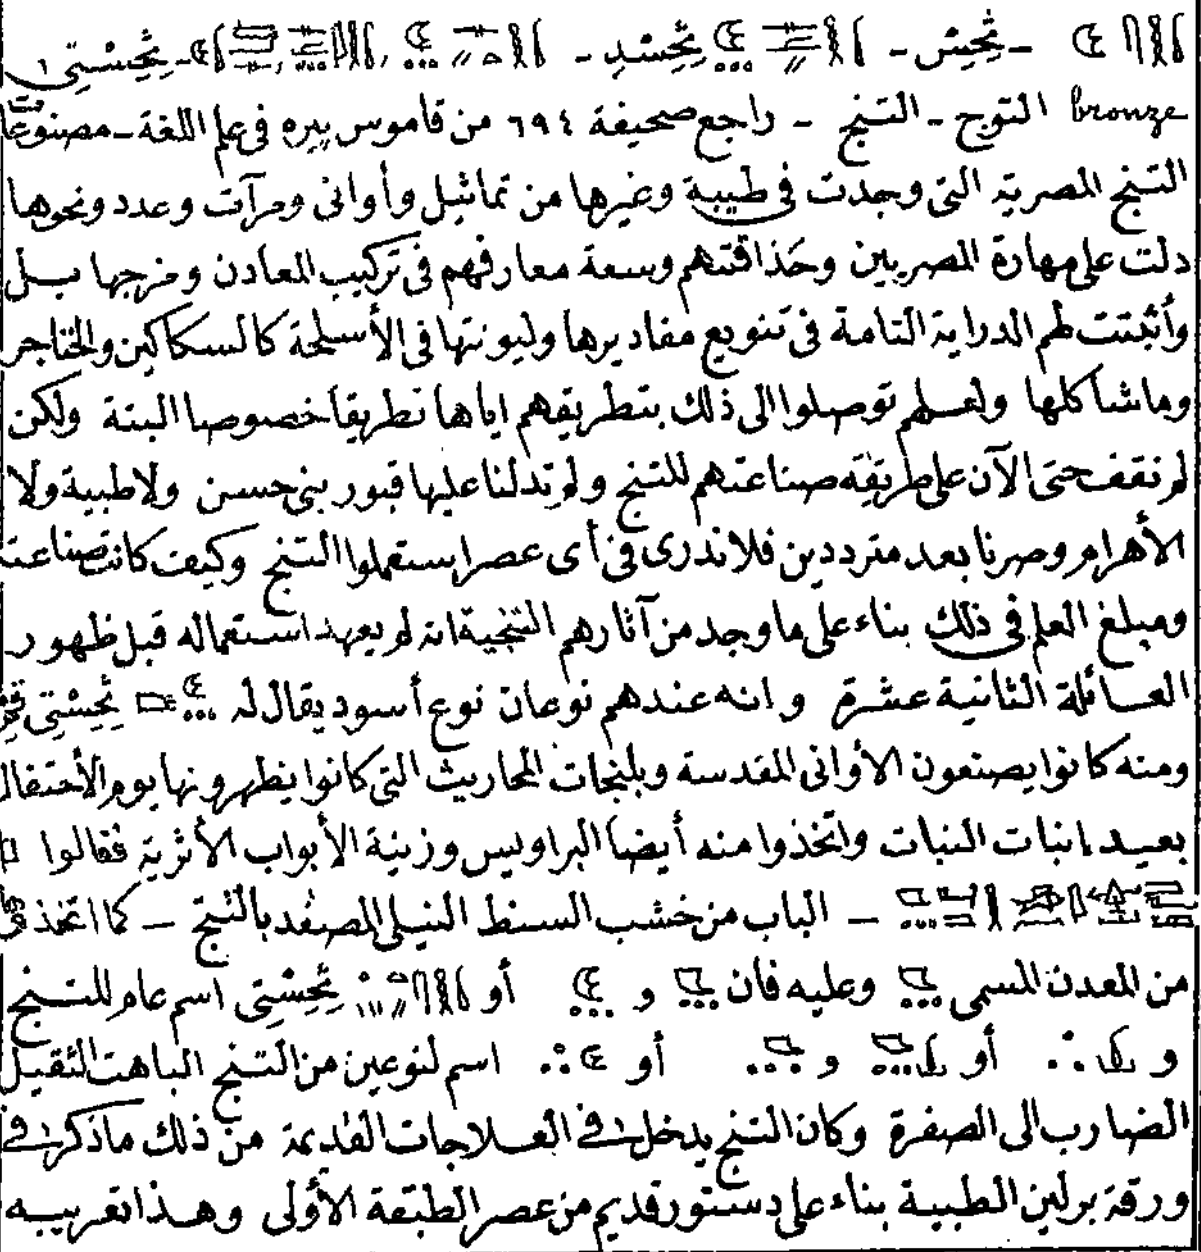 – نُحِسْ – نُحِسْدِ – – نُحِسْتِى ١
bronze التوج – التنج – راجع صحيفة ٦٩٤ من قاموس بيره فى علم اللغة – مصنوعات
التنج المصرية التى وجدت فى طيبة وغيرها من تماثيل وأوانى ومرآت وعدد ونحوها
دلت على مهارة المصريين وحذاقتهم وسعة معارفهم فى تركيب المعادن ومزجها بل
وأثبتت لهم الدراية التامة فى تنويع مقاديرها وليونتها فى الأسلحة كالسكاكين والخناجر
وماشاكلها ولعلهم توصلوا الى ذلك بتطريقهم اياها تطريقا خصوصيا البتة ولكن
لم نقف حتى الآن على طريقة صناعتهم للتنج ولم تدلنا عليها قبور بنى حسن ولا طيبة ولا
الأهرام وصرنا بعد مترددين فلا ندرى فى أى عصر استعملوا التنج وكيف كانت صناعته
ومبلغ العلم فى ذلك بناء على ما وجد من آثارهم التنجية انه لم يعهد استعماله قبل ظهور
العائلة الثانية عشرة وانه عندهم نوعان نوع أسود يقال له نُحِسْتِى
ومنه كانوا يصنعون الأوانى المقدسة وبلنجات المحاريث التى كانوا يظهرونها يوم الأحتفال
بعيد انبات النبات واتخذوا منه أيضا البراويس وزينة الأبواب الأثرية فقالوا
– الباب من خشب السنط النيلى المصفد بالتنج – كما اتخذ
من المعدن المسمى وعليه فان و أو نُحِسْتِى اسم عام للتنج
و أو و أو اسم لنوعين من التنج الباهت الثقيل
الضارب الى الصفرة وكان التنج يدخل فى العلاجات القديمة من ذلك ما ذكر فى
ورقة برلين الطبية بناء على دستور قديم من عصر الطبقة الأولى وهذا تعريبه